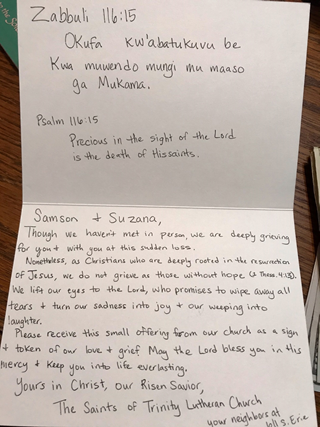 Zabbuli 116:15
Okufa kw'abatukuvu be
Kwa muwendo mungi mu maaso
ga Mukama.
Psalm 116:15
Precious in the sight of the Lord
is the death of His saints.
Samson + Suzana,
Though we haven't met in person, we are deeply grieving
for you + with you at this sudden loss.
Nonetheless, as Christians who are deeply rooted in the resurrection
of Jesus, we do not grieve as those without hope (1 Thess. 4:13).
We lift our eyes to the Lord, who promises to wipe away all
tears + turn our sadness into joy + our weeping into
laughter.
Please receive this small offering from our church as a sign
+ token of our love + grief May the Lord bless you in His
mercy + keep you into life everlasting.
Yours in Christ, our Risen Savior,
The Saints of Trinity Lutheran Church
your neighbors at
S. Erie